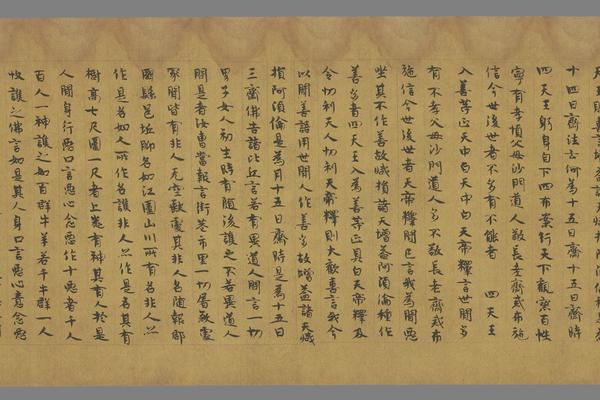 十四日齋法云何為十五日齋十五日齋時
四天王躬身自下四布案行天下觀察百姓
寧有孝順父母沙門道人敬長老齋戒布施
信今世後世者不多有不餓者 四天王
入善等正天中白天帝釋言世間多
有不孝父母沙門道人多不敬長老齋戒布
施信今世後世者天帝釋聞已言我為聞惡
坐其不作善故減損諸天增益阿須倫種作
善多者四天王入為善等正具白天帝釋及
令忉利天人忉利天帝釋則大歡喜言我今
以聞善語用世間人作善多故增益諸天減
損阿須倫是為月十五日齋時是為十五日
三齋佛告諸比丘言若有異道人問言一切
男子女人初生時有隨後護之不若異道人
問是者汝曹當報言街巷市里一切屠殺處
冢間皆有非人无空缺處其非人名隨報郡
國縣邑丘聊名如江國山川所有名非人亦
作是名如人所作名護非人亦作是名其有
樹高七尺圍一尺者上悉有神其有人於是
人間身行惡口言惡心念惡作十惡者千人
百人一神護之如百群牛羊若千牛群一人
牧護之佛言如是其人身口言惡心意念惡